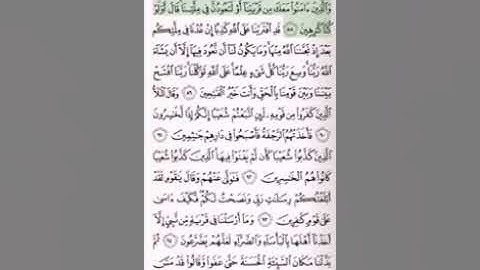 وَٱلَّذِينَ ءَامَنُوا۟ مَعَكَ مِن قَرْيَتِنَآ أَوْ لَتَعُودُنَّ فِى مِلَّتِنَا قَالَ أَوَلَوْ
كُنَّا كَٰرِهِينَ ٨٨ قَدِ ٱفْتَرَيْنَا عَلَى ٱللَّهِ كَذِبًا إِنْ عُدْنَا فِى مِلَّتِكُم
بَعْدَ إِذْ نَجَّىٰنَا ٱللَّهُ مِنْهَا وَمَا يَكُونُ لَنَآ أَن نَّعُودَ فِيهَآ إِلَّآ أَن يَشَآءَ
ٱللَّهُ رَبُّنَا وَسِعَ رَبُّنَا كُلَّ شَىْءٍ عِلْمًا عَلَى ٱللَّهِ تَوَكَّلْنَا رَبَّنَا ٱفْتَحْ
بَيْنَنَا وَبَيْنَ قَوْمِنَا بِٱلْحَقِّ وَأَنتَ خَيْرُ ٱلْفَٰتِحِينَ ٨٩ وَقَالَ ٱلْمَلَأُ
ٱلَّذِينَ كَفَرُوا۟ مِن قَوْمِهِۦ لَئِنِ ٱتَّبَعْتُمْ شُعَيْبًا إِنَّكُمْ إِذًا لَّخَٰسِرُونَ
٩٠ فَأَخَذَتْهُمُ ٱلرَّجْفَةُ فَأَصْبَحُوا۟ فِى دَارِهِمْ جَٰثِمِينَ ٩١
ٱلَّذِينَ كَذَّبُوا۟ شُعَيْبًا كَأَن لَّمْ يَغْنَوْا۟ فِيهَا ٱلَّذِينَ كَذَّبُوا۟ شُعَيْبًا
كَانُوا۟ هُمُ ٱلْخَٰسِرِينَ ٩٢ فَتَوَلَّىٰ عَنْهُمْ وَقَالَ يَٰقَوْمِ لَقَدْ
أَبْلَغْتُكُمْ رِسَٰلَٰتِ رَبِّى وَنَصَحْتُ لَكُمْ فَكَيْفَ ءَاسَىٰ
عَلَىٰ قَوْمٍ كَٰفِرِينَ ٩٣ وَمَآ أَرْسَلْنَا فِى قَرْيَةٍ مِّن نَّبِىٍّ إِلَّآ
أَخَذْنَآ أَهْلَهَا بِٱلْبَأْسَآءِ وَٱلضَّرَّآءِ لَعَلَّهُمْ يَضَّرَّعُونَ ٩٤ ثُمَّ
بَدَّلْنَا مَكَانَ ٱلسَّيِّئَةِ ٱلْحَسَنَةَ حَتَّىٰ عَفَوا۟ وَّقَالُوا۟ قَدْ مَسَّ